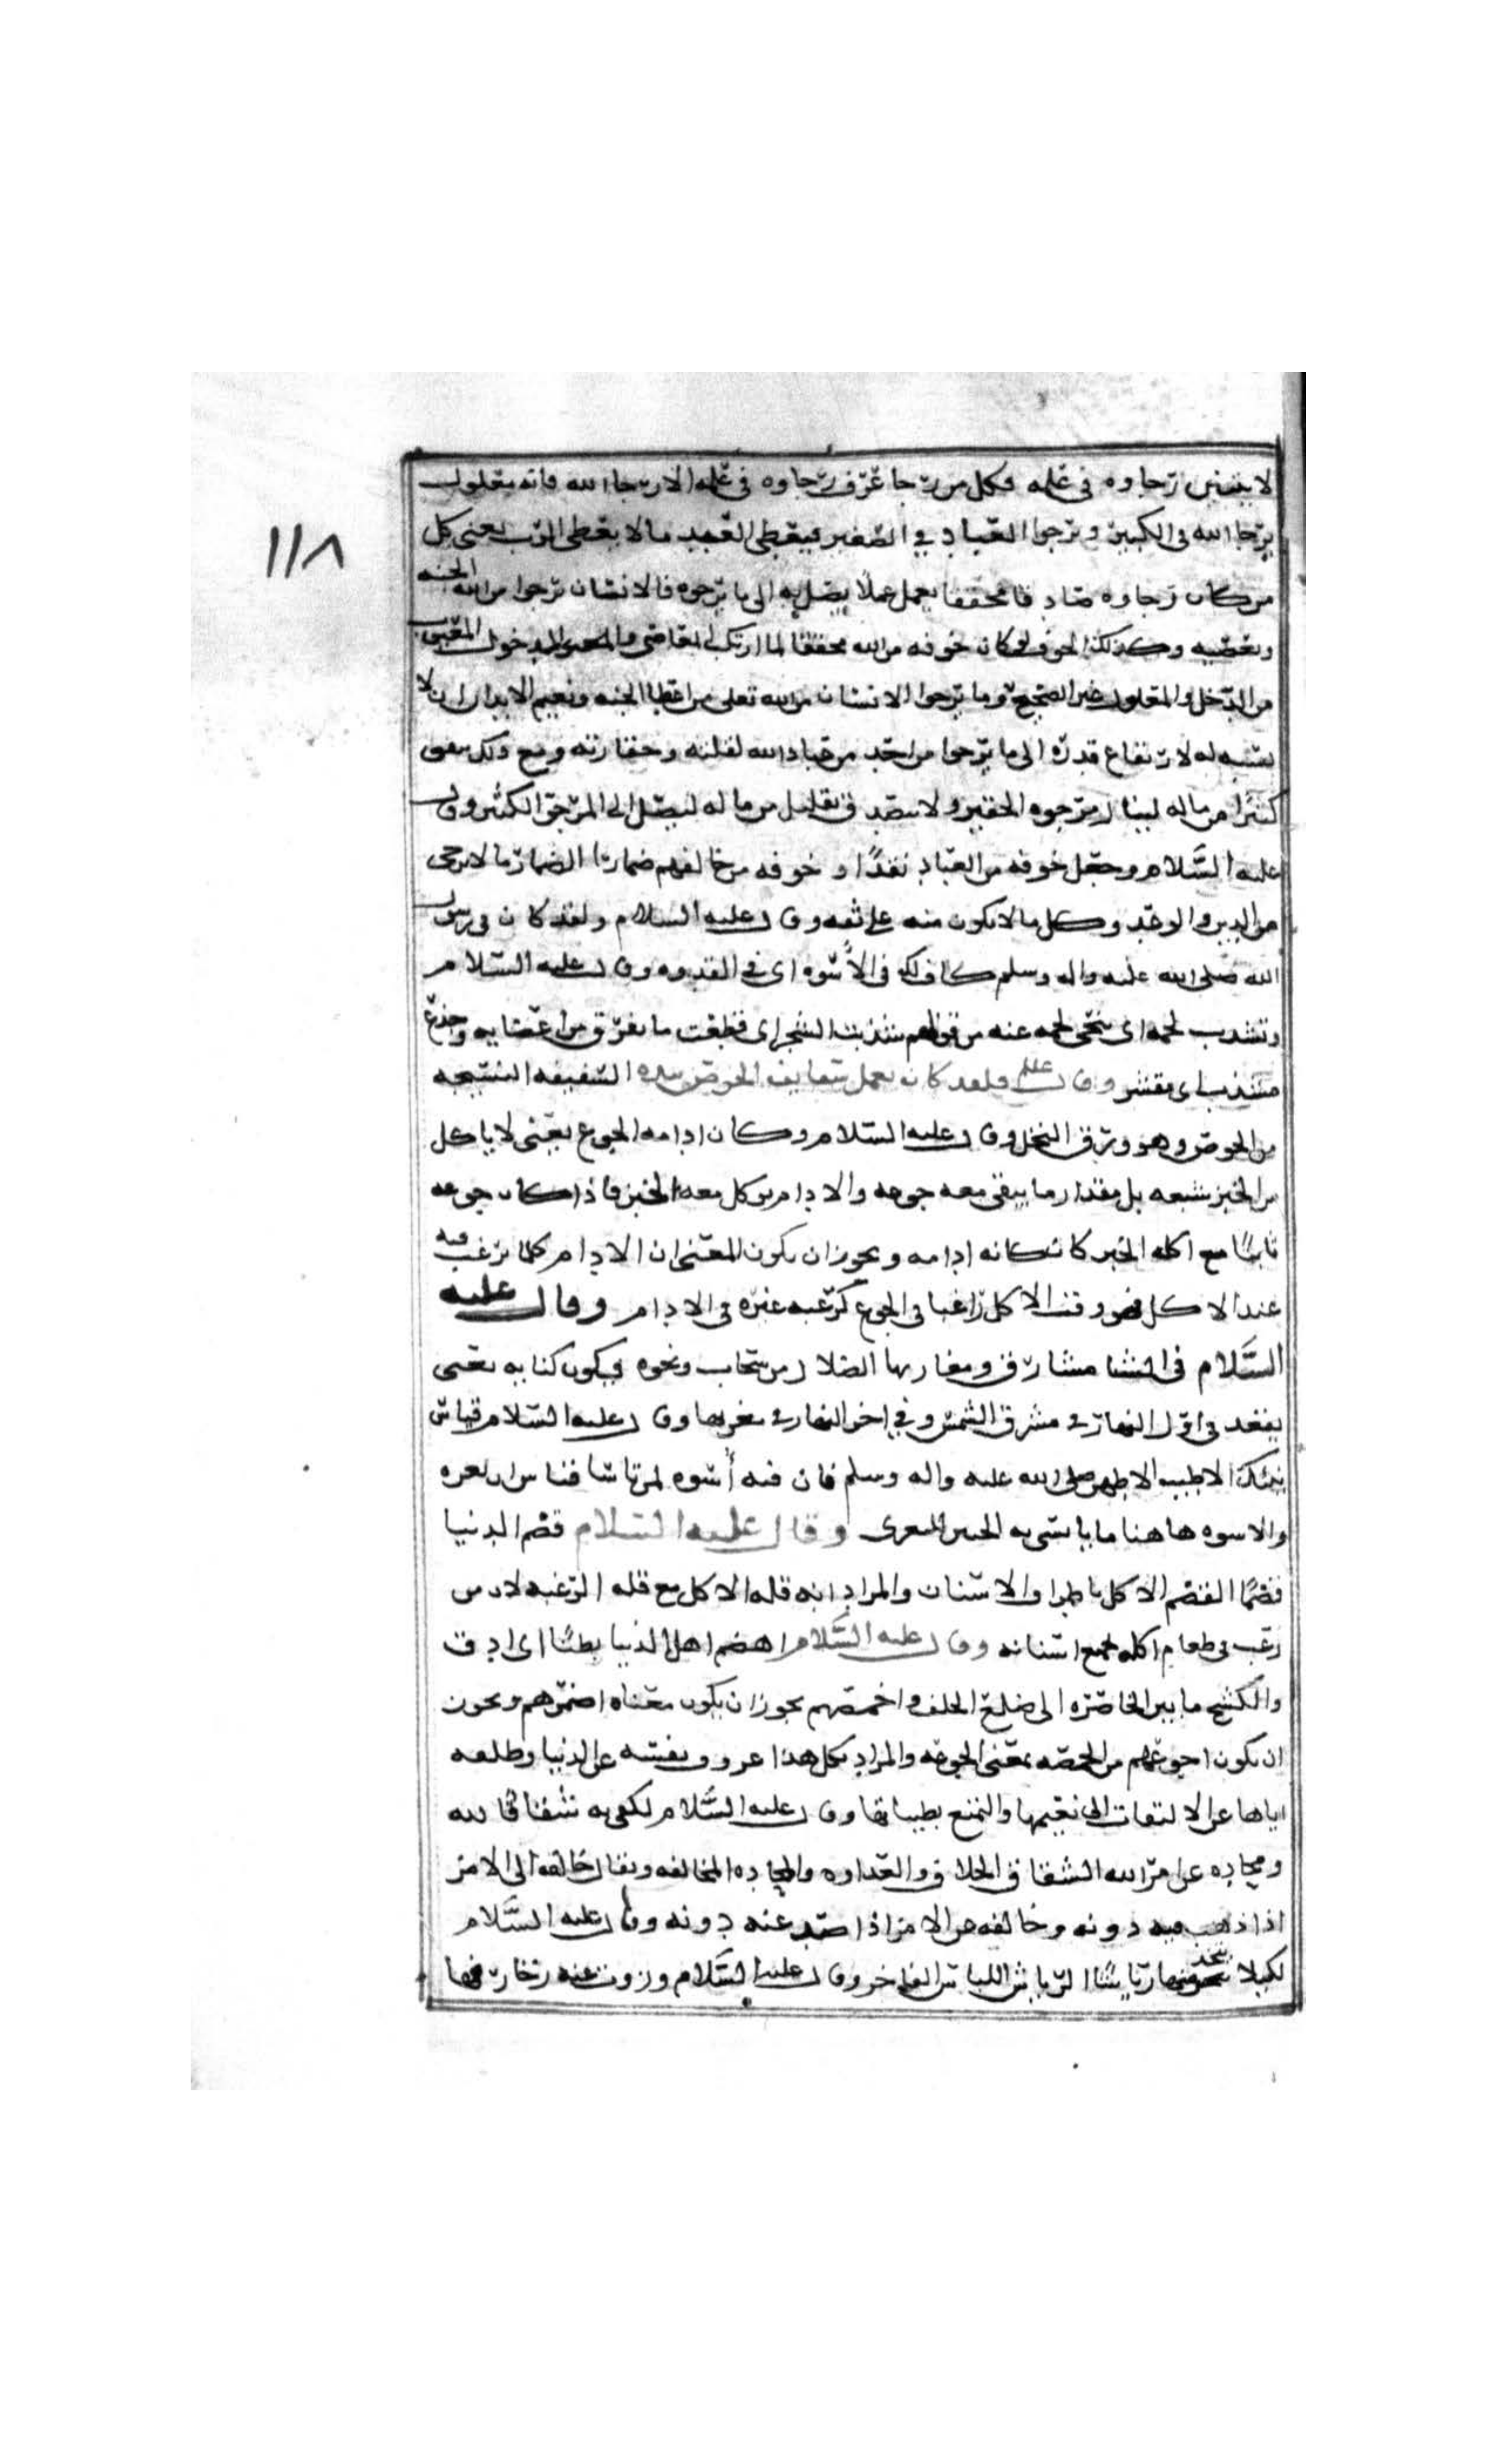 ١١٨
لا يتبين رجاوه في عمله فكل من رجا عرف رجاوه في عمله الا رجا الله فانه معلول
يرجا الله في الكبير ويرجوا العباد في الصغير فيعطي العبد ما لا يعطي الرب يعني كل
من كان رجاوه صادقا محققا يعمل عملا يصل به الى ما يرجوه فالانسان يرجوا من الله الجنه
وكذلك الخوف كان خوفه من الله محققا لما ارتكب المعاصي والمدخول المعيب
من الدخل والمعلول غير الصحيح وما يرجوا الانسان من الله تعلى من اعطا الجنه ونعيم الابد لا
نسبه له لارتفاع قدره الى ما يرجوا من احد من عباد الله لقلته وحقارته ومع ذلك
كثيرا من ماله لينال مرجوه الحقير ولا في تقليل من ماله ليصل الى المرجو الكثير وقال
عليه السلام وجعل خوفه من العباد نقدا وخوفه من خالقهم ضمارا الضمار ما لا يرجى
من الدين والوعد وكل ما لا يكون منه على ثقه وقال عليه السلام ولقد كان في رسول
الله صلى الله عليه واله وسلم كاف لك في الأسوه اى في القدوه وقال عليه السلام
وتشذب لحمه اى تنحى لحمه عنه من قولهم شذبت الشجر اى قطعت ما تفرق من اغصانه وجذع
مشذب اى مقشر وقال علللم فلقد كان يعمل سفايف الخوص بيده السفيفه النسيجه
من الخوص وهو ورق النخل وقال عليه السلام وكان ادامه الجوع يعني لا ياكل
من الخبز شبعه بل مقدار ما يبقى معه جوعه والادام يوكل معه الخبز فاذا كان جوعه
ثابتا مع اكله الخبز كان كانه ادامه ويجوز ان يكون المعنى ان الادام كلما يرغب فيه
عند الاكل فهو وقت الاكل راغبا في الجوع كرغبه غيره في الادام وقال عليه
السلام في الشتا مشارق ومغاربها الضلال من سحاب ونحوه فيكون كنايه يعني
يقعد في اول النهار في مشرق الشمس وفي اخر النهار في مغربها وقال عليه السلام
بنبيك الاطيب الاطهر صلى الله عليه واله وسلم فان فيه أسوه لمن تاسا
والاسوه هاهنا ما ياتسى به الحزين وقال عليه السلام قضم الدنيا
قضما القضم الاكل باطراف الاسنان والمراد انه قله الاكل مع قله الرغبه لان من
رغب في طعام اكله بجميع اسنانه وقال عليه السلام اهضم اهل الدنيا بطنا اى ادق
والكشح ما بين الخاصره الى ضلع الخلف واخمصهم يجوز ان يكون معناه اضمرهم ويجوز
ان يكون اجوعهم من الخمصه بمعنى الجوعه والمراد بكل هذا عزوف نفسه عن الدنيا
اياها عن الالتفات الى نعيمها والتمتع بطيباتها وقال عليه السلام لكفى به شقاقا لله
ومحاده عن امر الله الشقاق الخلاف والعداوه والمحاده المخالفه ويقال خالفه الى الامر
اذا ذهب اليه دونه وخالفه عن الامر اذا صد عنه دونه وقال عليه السلام
لكيلا يتخذ منها رياشا الرياش اللباس الفاخر وقال عليه السلام وزويت عنه زخارفها